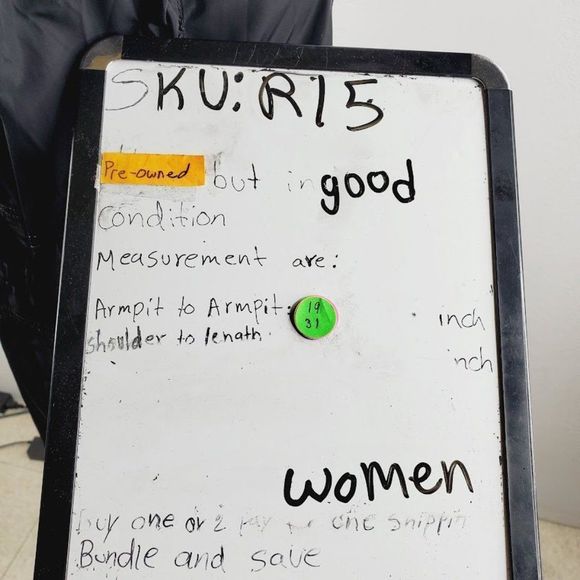 SKU: R15
Pre-owned but in good
Condition
Measurement are:
Armpit to Armpit: 19 inch
shoulder to lenath: 31 inch
women
buy one or 2 pay one snippin
Bundle and save